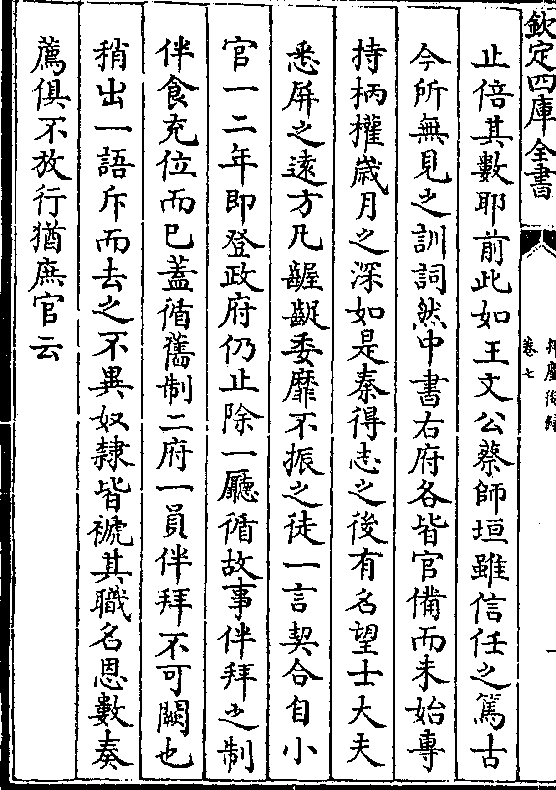 欽定四庫全書
卷七
止倍其數耶前此如王文公蔡師垣雖信任之篤古
今所無見之訓詞然中書右府各皆官備而未始專
持柄權歲月之深如是秦得志之後有名望士大夫
悉屏之遠方凡齷齪委靡不振之徒一言契合自小
官一二年即登政府仍止除一廳循故事伴拜之制
伴食充位而已蓋循舊制二府一員伴拜不可闕也
稍出一語斥而去之不異奴隸皆褫其職名恩數奏
薦俱不放行猶庶官云